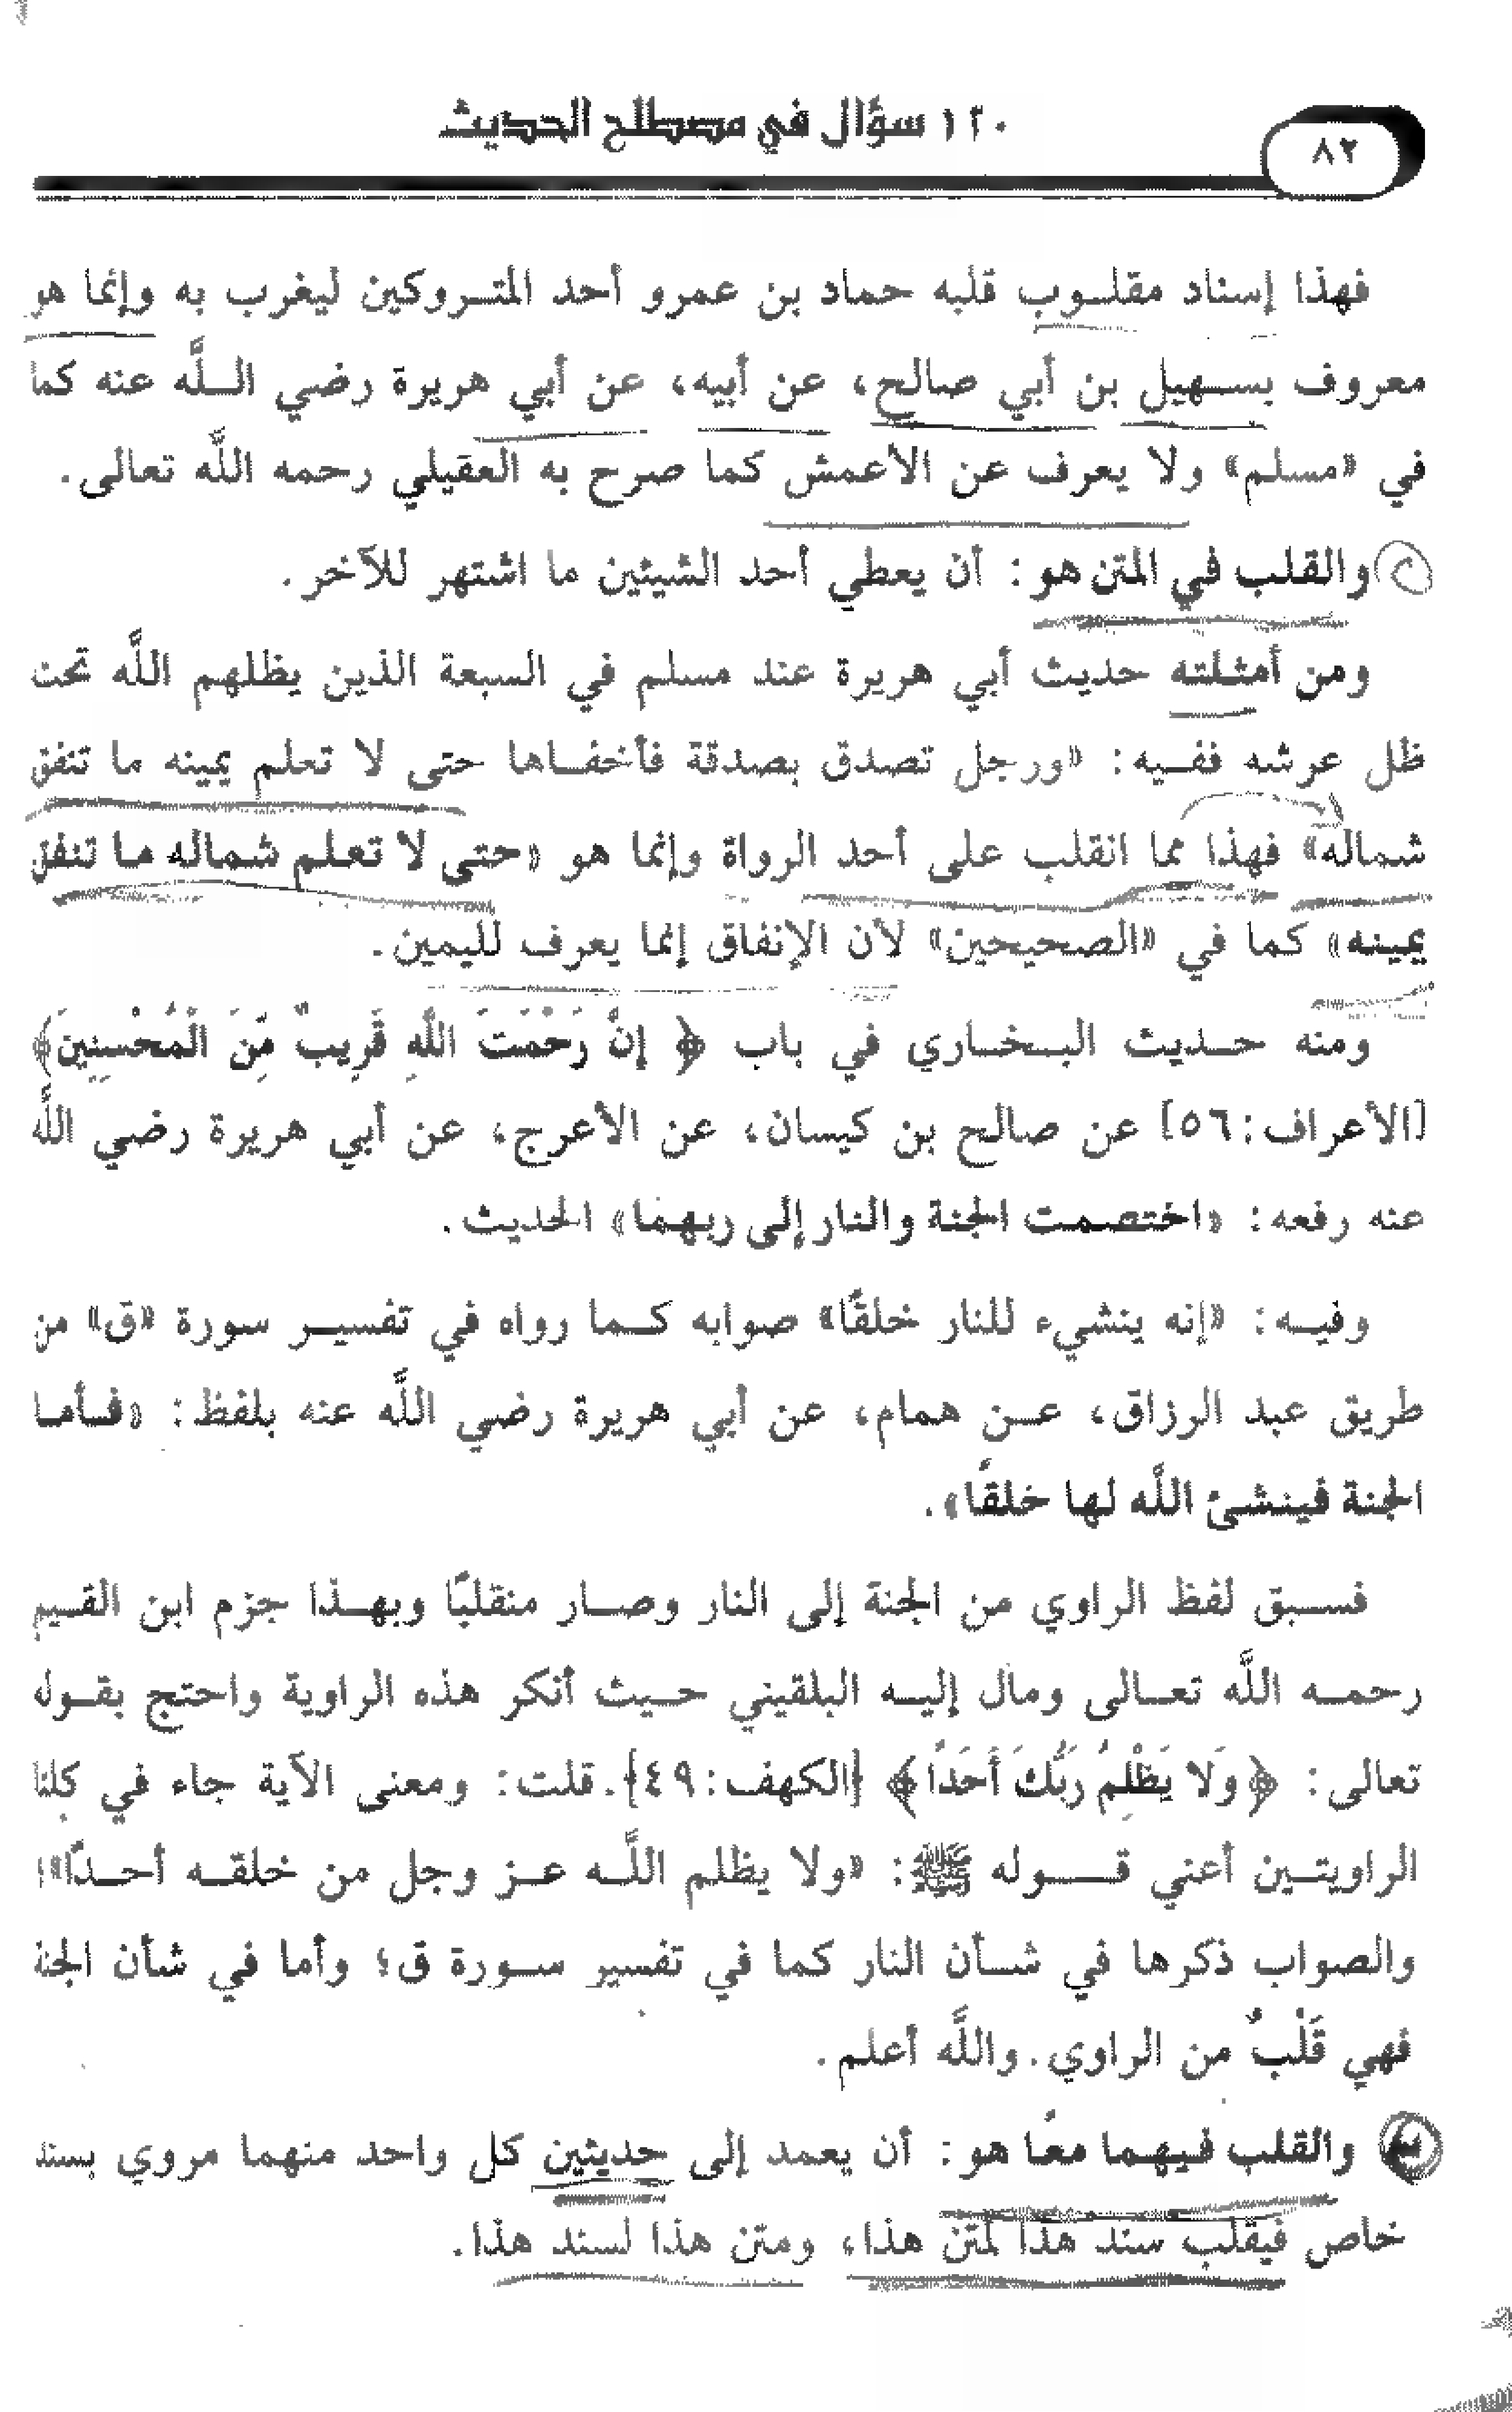 ١٢٠ سؤال في مصطلح الحديث
٨٢
فهذا إسناد مقلـوب قلبه حماد بن عمرو أحد المتـروكين ليغرب به وإنما هو
معروف بسـهيل بن أبي صالح، عن أبيه، عن أبي هريرة رضي الـلَّه عنه كما
في «مسلم» ولا يعرف عن الأعمش كما صرح به العقيلي رحمه اللَّه تعالى.
والقلب في المتن هو: أن يعطي أحد الشيئين ما اشتهر للآخر.
ومن أمثلته حديث أبي هريرة عند مسلم في السبعة الذين يظلهم اللَّه تحت
ظل عرشه ففـيه: «ورجل تصدق بصدقة فأخفـاها حتى لا تعلم يمينه ما تنفق
شماله» فهذا مما انقلب على أحد الرواة وإنما هو «حتى لا تعلم شماله ما تنفق
يمينه» كما في «الصحيحين» لأن الإنفاق إنما يعرف لليمين.
ومنه حـديث البـخـاري في باب ﴿ إِنَّ رَحْمَتَ اللَّهِ قَرِيبٌ مِّنَ الْمُحْسِنِينَ﴾
[الأعراف:٥٦] عن صالح بن كيسان، عن الأعرج، عن أبي هريرة رضي اللَّه
عنه رفعه: «اختصمت الجنة والنار إلى ربهما» الحديث.
وفيـه: «إنه ينشيء للنار خلقًا» صوابه كـما رواه في تفسيـر سورة «ق» من
طريق عبد الرزاق، عـن همام، عن أبي هريرة رضي اللَّه عنه بلفظ: «فـأما
الجنة فينشئ اللَّه لها خلقًا».
فسـبق لفظ الراوي من الجنة إلى النار وصـار منقلبًا وبهـذا جزم ابن القـيم
رحمـه اللَّه تعـالى ومال إليـه البلقيني حـيث أنكر هذه الراوية واحتج بقـوله
تعالى: ﴿وَلا يَظْلِمُ رَبُّكَ أَحَدًا﴾ [الكهف:٤٩]. قلت: ومعنى الآية جاء في كلتا
الراويتـين أعني قـــوله ﷺ: «ولا يظلم اللَّـه عـز وجل من خلقـه أحـدًا»!
والصواب ذكرها في شـأن النار كما في تفسير سـورة ق؛ وأما في شأن الجنة
فهي قَلْبٌ من الراوي. واللَّه أعلم.
والقلب فـيهـما معًا هو: أن يعمد إلى حديثين كل واحد منهما مروي بسند
خاص فيقلب سند هذا لمتن هذا، ومتن هذا لسند هذا.